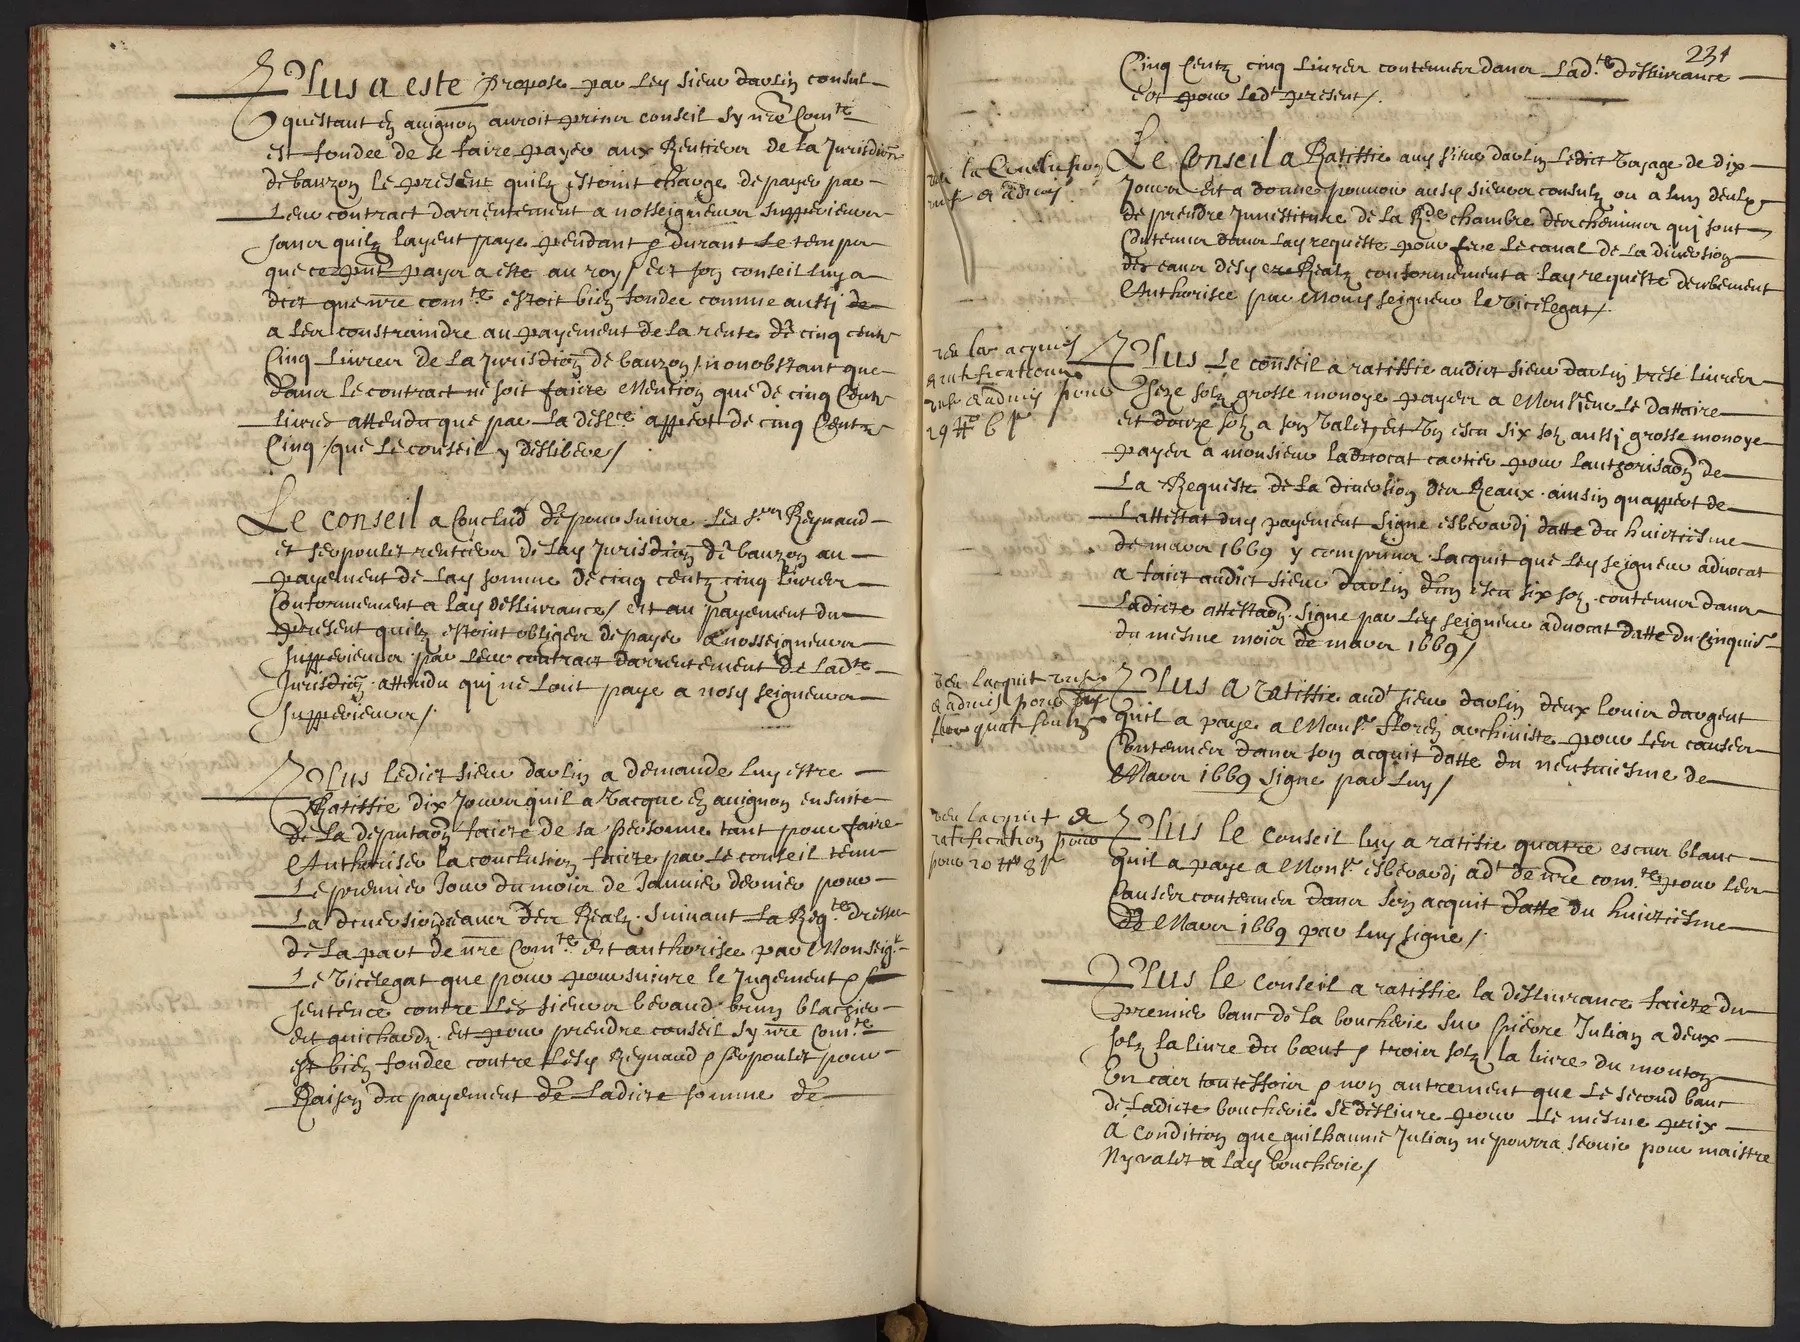 Plus a este propose par ledt sieur davlin consul
questant en avignon auroit prins conseil sy nre Comte
est fondee de se faire payer aux Rentiers de la Jurisdion
de bauzon le present quilz estoint charge de payer par
Leur contract darrentement a nosseigneurs supperieurs
sans quilz layent paye pendant & durant le temps
que ce pnt pays a este au roy / et son conseil luy a
dict que nre comte estoit bien fondee comme aussi de
a les constraindre au payement de la rente de cinq cens
Cinq Livres de la Jurisdion de bauzon / nonobstant que
dans le contract ne soit faicte Mention que de cinq Cens
livres attendu que par la desl.ce appert de cinq Centz
Cinq / que le conseil y deslibere /
Le conseil a Conclud de poursuivre les s.rs Reynaud
et serpoulet rentiers de lad Jurisdion de bauzon au
payement de lad somme de cinq centz cinq Livres
Conformement a lad deslivrance / et au payement du
present quilz estoint obliges de payer a nosseigneurs
supperieurs par leur contract darrentement de ladte
Jurisdion attendu qui ne lont paye a nosd seigneurs
supperieurs /
Plus ledict sieur davlin a demande luy estre
Ratiffie dix Jours quil a vacque en avignon ensuite
de la deputaon faicte de sa personne tant pour faire
Authoriser la conclusion faicte par le conseil tenu
Le premier Jour du mois de Janvier dernier pour
La diversion deaues des Realz suivant la Reqte dressee
de la part de nre Comte et authorisee par Monseigr
Le Vicelegat que pour poursuivre le Jugement &
sentence contre les sieurs beraud brun blachier
et guichard et pour prendre conseil sy nre Comte
est bien fondee contre lesd Reynaud & serpoulet pour
Raison du payement de ladicte somme de
231
Cinq Centz cinq livres contenues dans ladte deslivrance
et pour ledt present /
veu la Conclusion
Le Conseil a Ratiffie aud sieur davlin ledict voyage de dix
Jours et a donne pouvoir ausd sieurs consulz ou a lun deulx
de prendre Junestiture de la Rde chambre des chemins qui sont
Contenus dans lad requeste pour fere le canal de la diversion
des eaues desd Realz conformement a lad requeste deubement
Authorisee par Monseigneur le vicelegat /
veu les acquis
& ratification
& admis pour
29 ₶ 6 s
Plus Le conseil a ratiffie audict sieur davlin trese livres
seze solz grosse monoye payes a Monsieur le dattaire
et douze solz a son valet, et un escu six solz aussi grosse monoye
payes a monsieur ladvocat cartier pour lauthorisaon de
La Requeste de la diversion des Reaux ainsin quappert de
Lattestat dud payement signe esberardj datte du huictiesme
de mars 1669 y comprins lacquit que led seigneur advocat
a faict audict sieur davlin dun escu six solz contenus dans
Ladicte attestaon signe par led seigneur advocat datte du Cinquie
du mesme mois de mars 1669 /
veu lacquit
& admis pour
Plus a ratiffie audt sieur davlin deux louis dargent
quil a paye a Monsr floren archiviste pour les causes
Contenues dans son acquit datte du neufviesme de
Mars 1669 signe par luy /
veu lacquit &
ratification pour
pour 20 ₶ 8 s
Plus le conseil luy a ratiffie quatre escus blanc
quil a paye a Monsr esberardj adt de nre comte pour les
causes contenues dans son acquit datte du huictiesme
de Mars 1669 par luy signe /
Plus le conseil a ratiffie la deslivrance faicte du
premier banc de la boucherie sur pierre Julian a deux
solz la livre du boeuf & trois solz la livre du mouton
En cas toutesfois & non autrement que le second banc
de ladicte boucherie se deslivre pour le mesme prix
a condition que guilhaume Julian ne pourra servir pour maistre
Ny valet a lad boucherie /